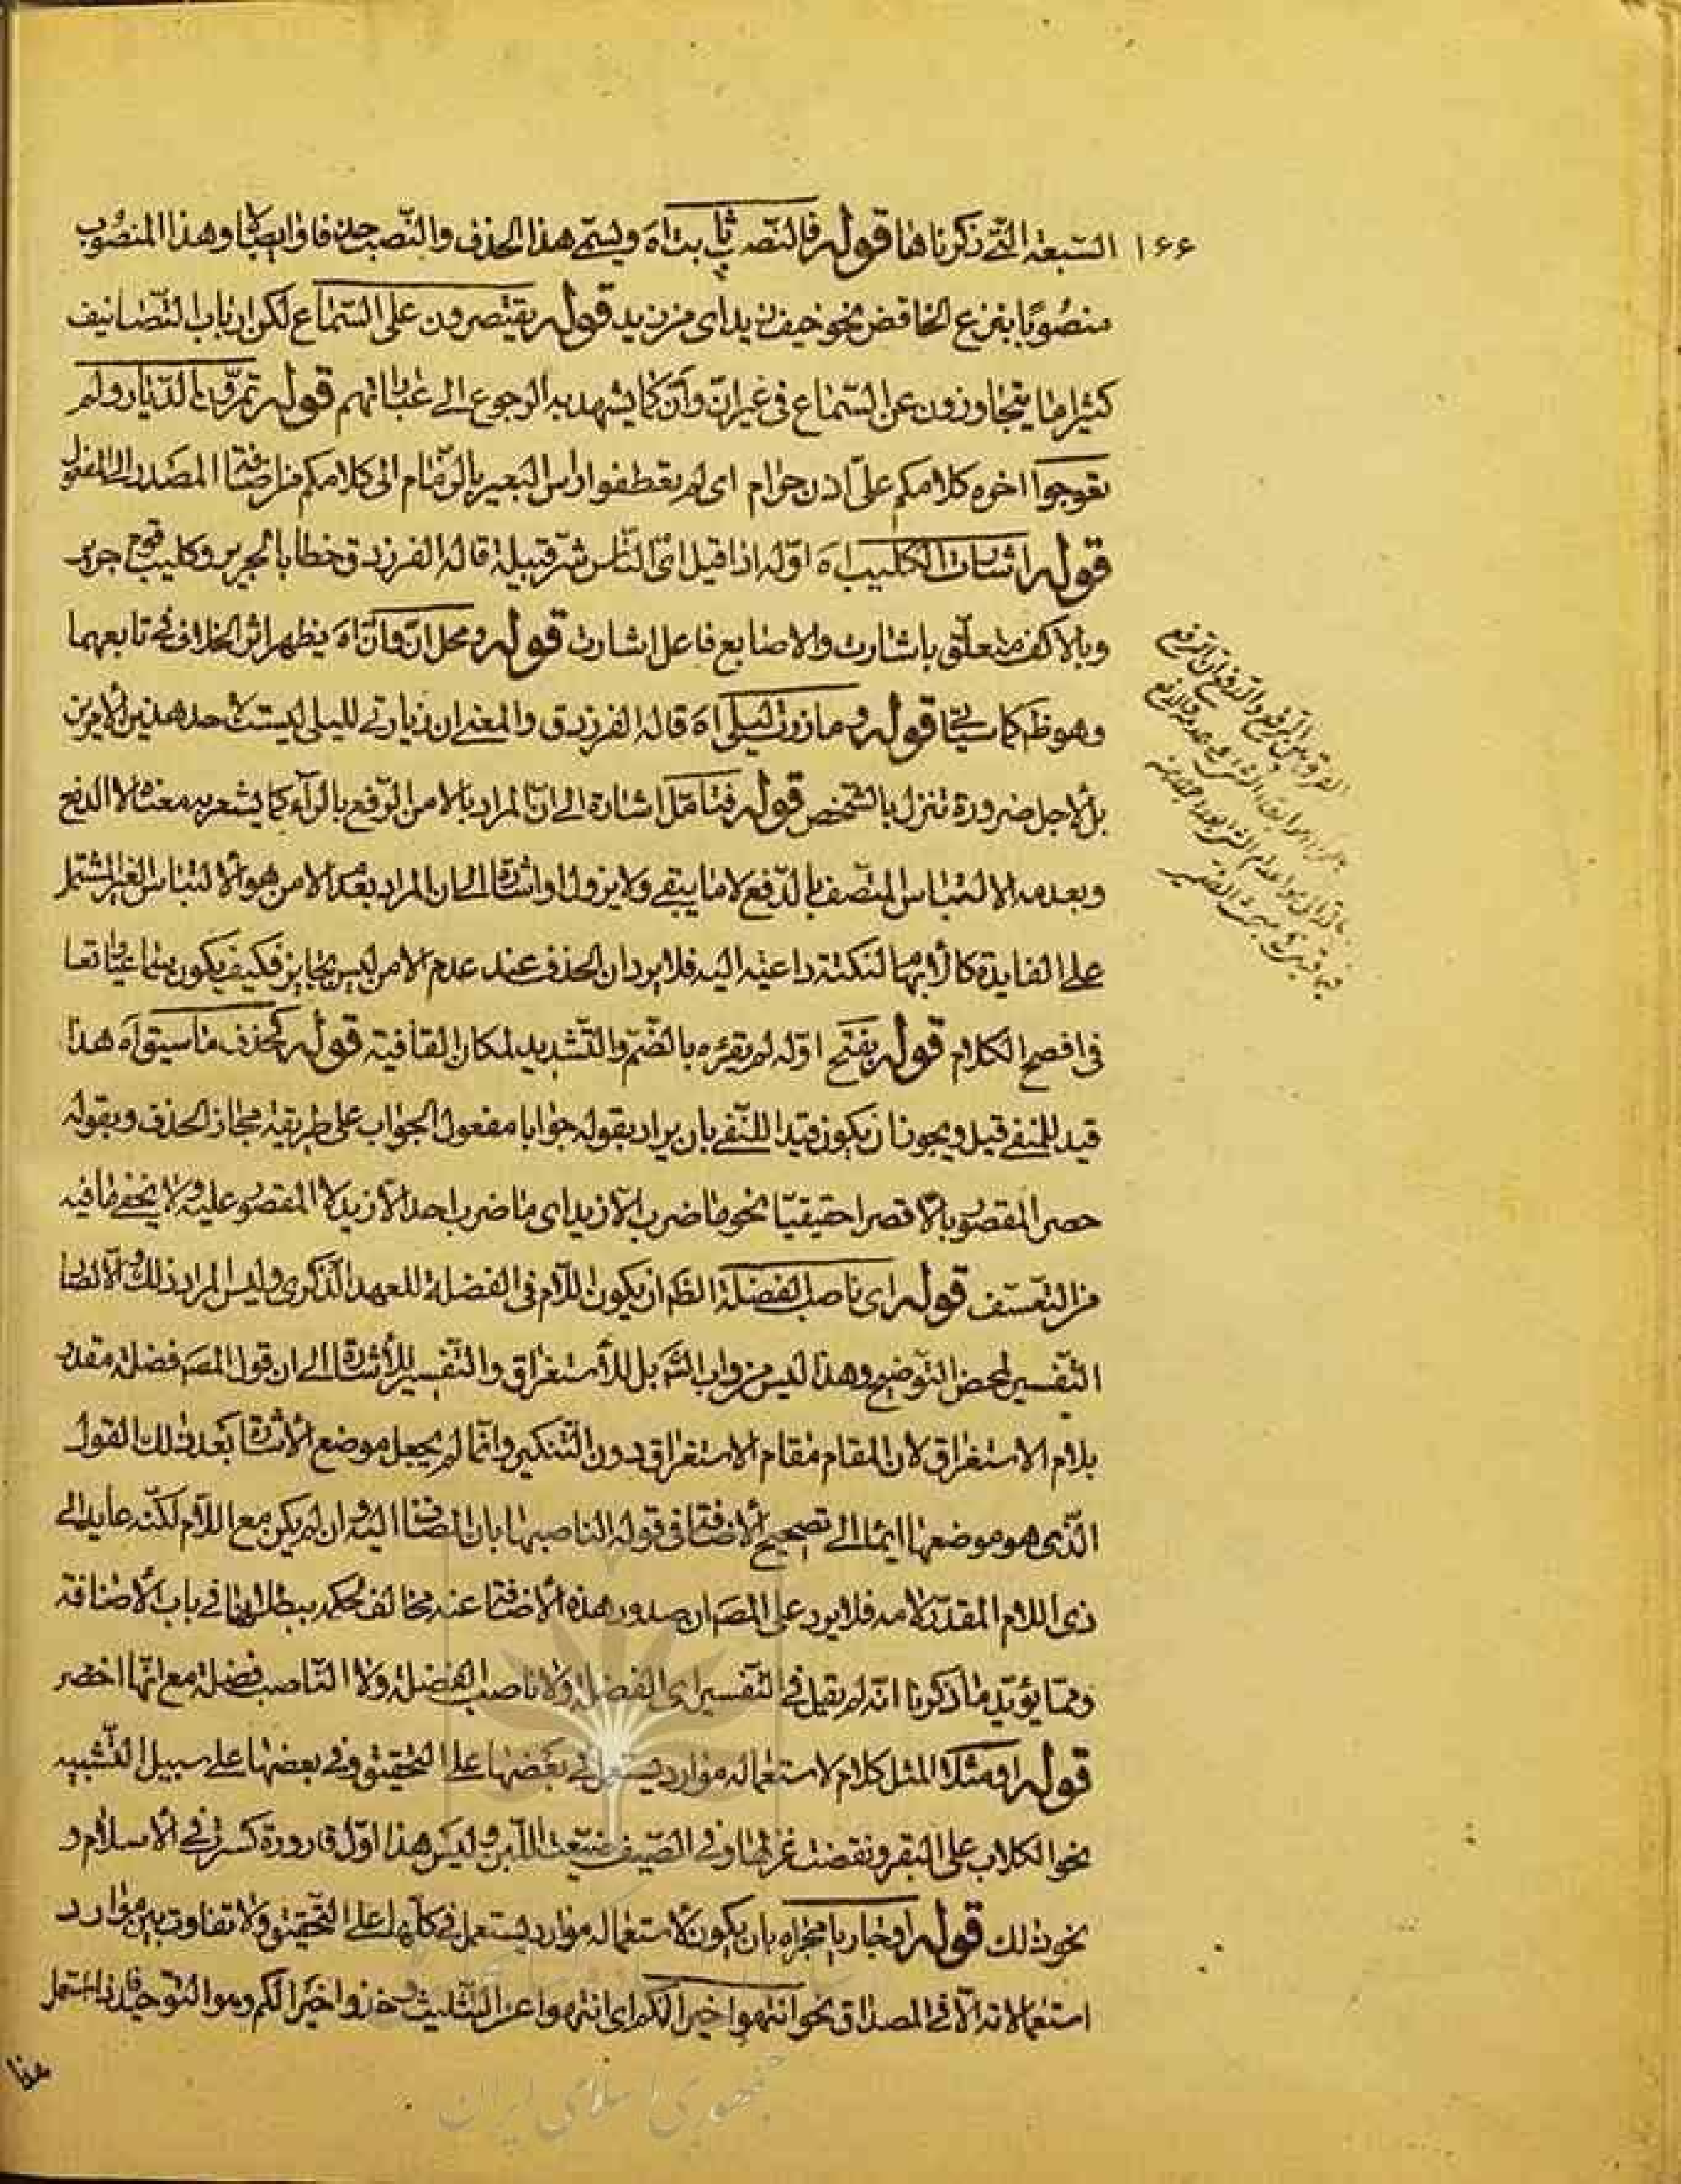 ١۶۶ السّبعة الّتي ذكرناها قوله فالنّصب ثابت اه ويسمّى هذا الحذف والنّصب حذفا وايصالا وهذا المنصوب
منصوبا بنزع الخافض نحو خيف زيد اى من زيد قوله يقتصرون على السّماع لكن ارباب التّصانيف
كثيرا ما يتجاوزون عن السّماع فى غير انّ وأن كما يشهد به الرجوع الى عباراتهم قوله تمرّون بالدّيار ولم
تعوجوا اخره كلامكم علىّ اذن حرام اى لم تعطفوا راس البعير بالزّمام الى كلامكم من اضافة المصدر الى المفعول
قوله اشارت الكليب اه اوّله اذا قيل اىّ النّاس شرّ قبيلة قاله الفرزدق خطابا لجرير وكليب قوم جرير
وبالاكف متعلّق باشارت والاصابع فاعل اشارت قوله ومحل انّ وأن اه يظهر اثر الخلاف فى تابعهما
وهو ظ كما سيجئ قوله وما زرت ليلى اه قاله الفرزدق والمعنى ان زيارتى لليلى ليست لاحد هذين الامرين
بل لاجل ضرورة تنزل بالشّخص قوله فتأمّل اشارة الى انّ المراد بالامن الرّفع بالرّاء كما يشعر به معناه لا الدفع
وبعدمه الالتباس المتّصف بالدّفع لا ما يبقى ولا يزول او اشارة الى ان المراد بعدم الامن هو الالتباس الغير المشتمل
على الفايدة كالابهام لنكتة داعية اليه فلا يرد ان الحذف عند عدم الامن ليس بجايز فكيف يكون واقعا
فى افصح الكلام قوله بفتح اوّله لم يقرءه بالضّم والتّشديد لمكان القافية قوله كحذف ما سيق اه هذا
قيد للمنفى قيل ويجوز ان يكون قيدا للنّفى بان يراد بقوله جوابا مفعول الجواب على طريقة مجاز الحذف وبقوله
حصر المقصور بالّا قصرا حقيقيّا نحو ما ضرب الّا زيد اى ما ضرب احد الّا زيد لا المقصور عليه ولا يخفى ما فيه
من التّعسّف قوله اى ناصب الفضلة الظّ ان يكون اللّام فى الفضلة للعهد الذّكرى وليس المراد ذلك والّا لصار
التّفسير لمحض التّوضيح وهذا ليس من داب الش بل للاستغراق والتّفسير للاشارة الى ان قول المص فضلة مقدر
بلام الاستغراق لان المقام مقام الاستغراق دون التّنكير وانّما لم يجعل موضع الاشارة بعد ذلك القول
الّذى هو موضعها ايماء الى تصحيح الاضافة فى قوله الناصبها بان المضاف اليه وان لم يكن مع اللّام لكنّه عايد الى
ذى اللام المقدّر لامه فلا يرد على المص ان صدور هذه الاضافة عنه مخالف لحكمه ببطلانها فى باب الاضافة
وممّا يؤيّد ما ذكرنا انّه لم يقل فى التّفسير اى الفضلة ولا ناصب الفضلة ولا النّاصب فضلة مع انّها اخصر
قوله او مثلا المثل كلام لاستعماله موارد يستعمل فى بعضها على التحقيق وفى بعضها على سبيل التّشبيه
نحو الكلاب على البقر ونقضت غزلها وفى الصّيف ضيّعت اللّبن وليس هذا اوّل قارورة كسرت فى الاسلام و
نحو ذلك قوله او جاريا مجراه بان يكون لاستعماله موارد يستعمل فى كلّها على التّحقيق ولا تفاوت بين موارد
استعمالاته الّا فى المصداق نحو انتهوا خيرا لكم اى انتهوا عن التّثليث وخذوا خيرا لكم وهو التّوحيد فان استعمل
هذا
الفرق بين الرفع والدفع ان الرفع
جمهوری اسلامی ایران